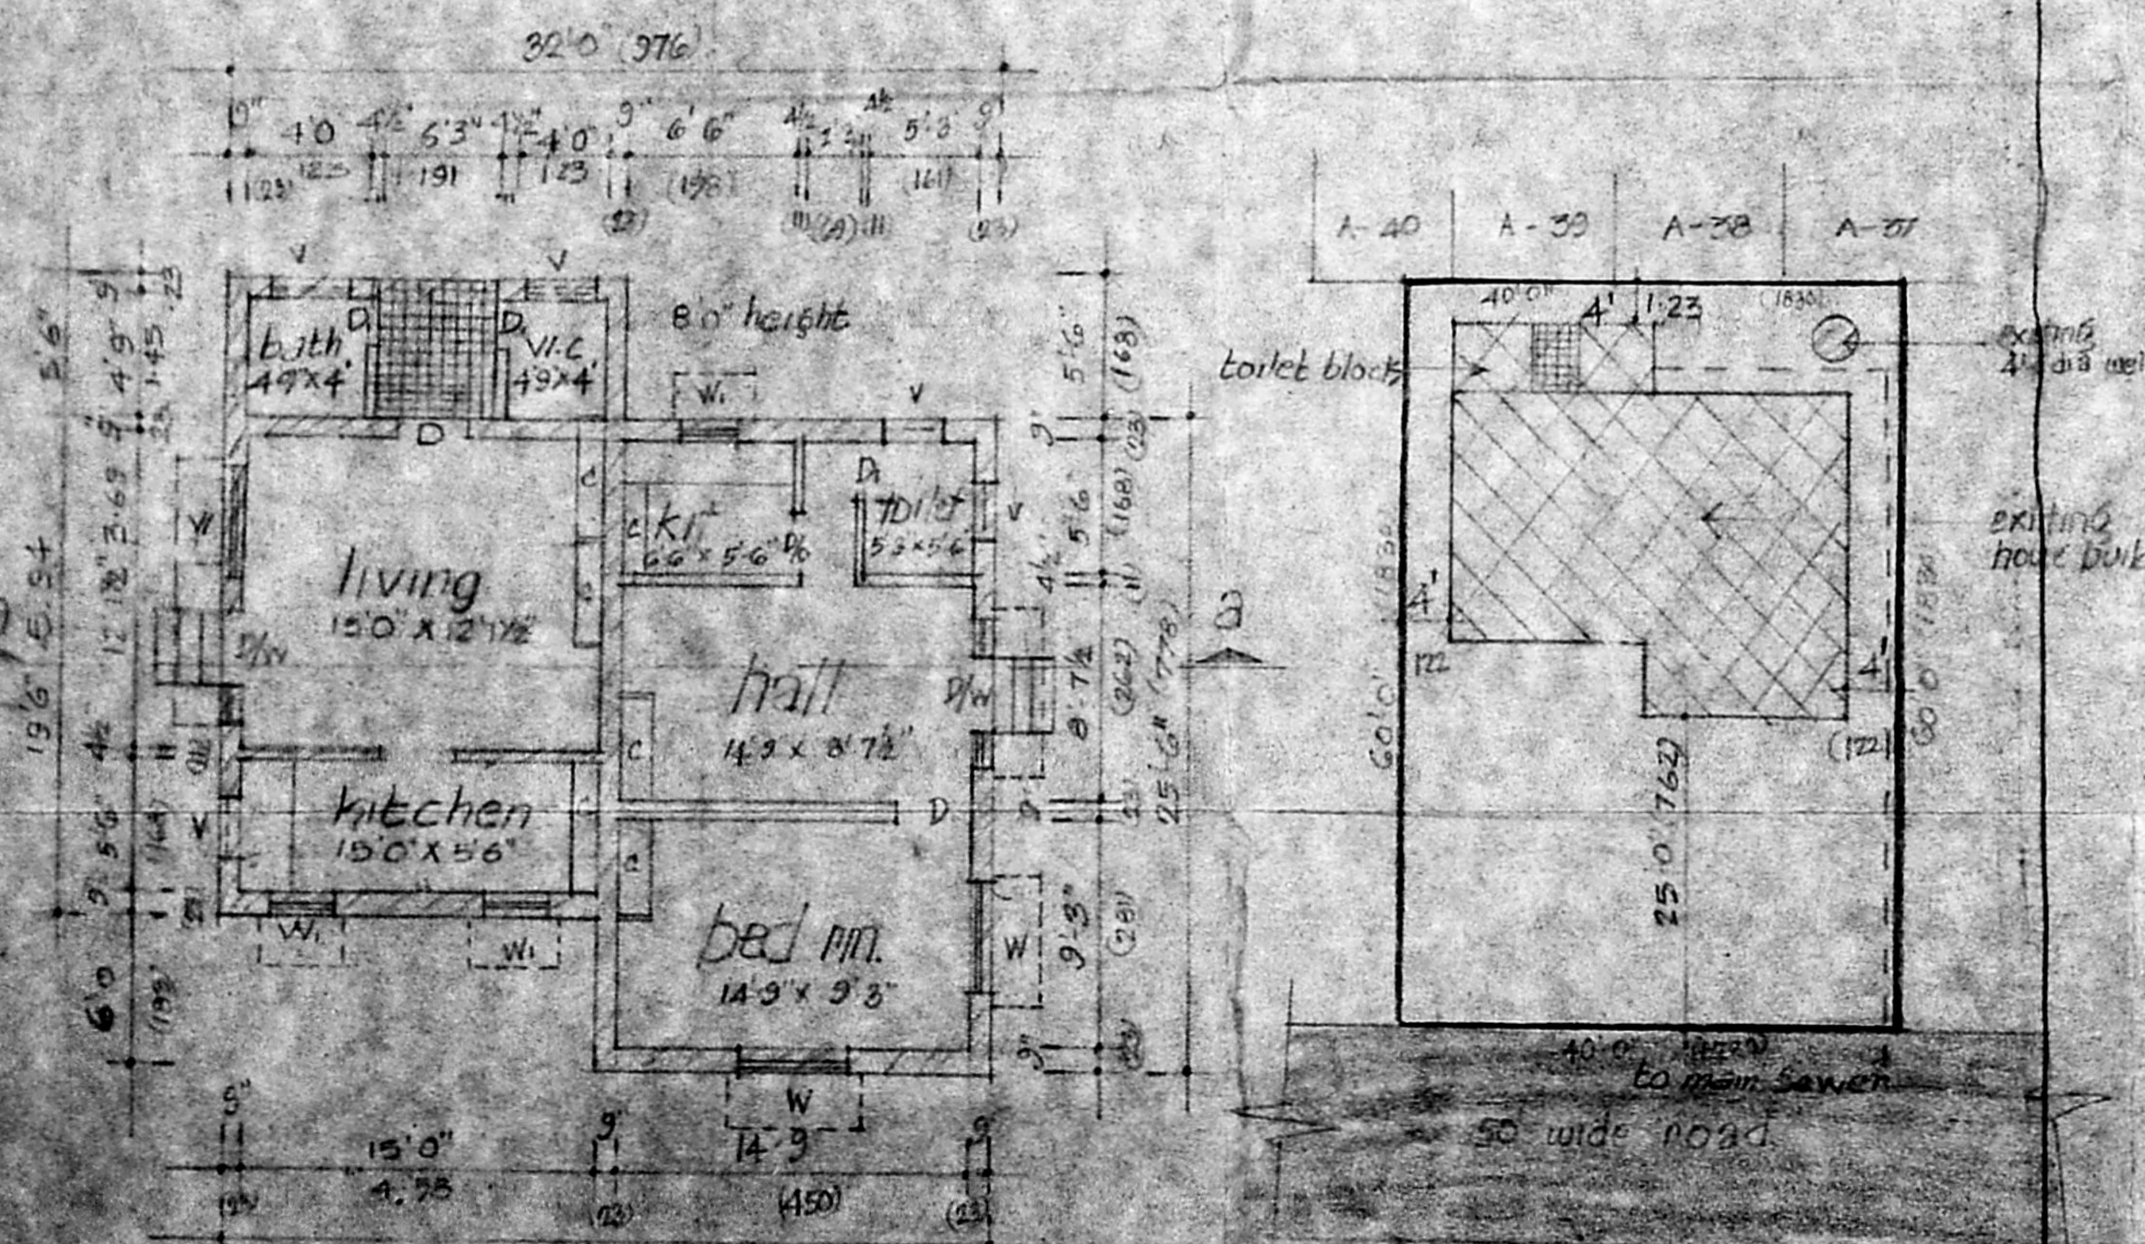 32'0" (976)
9" 4'0 4½" 6'3" 4½" 4'0" 9" 6'6" 4½ 4½ 5'3" 9"
(23) 123 191 123 (198) (161)
(23) (11) (11) (23)
A-40 A-39 A-38 A-37
V V
bath
4'9"X4'
D1
D1
W.C
4'9"X4'
8'0" height
W1
V
D
living
15'0" X 12'1½"
W
D/W
C
C
C
kit
6'6" X 5'6"
D/o
D1
toilet
5'3"X5'6"
V
hall
14'9" X 8'7½"
D/W
C
kitchen
15'0" X 5'6"
V
D
C
bed rm.
14'9" X 9'3"
W1 W1
W
W
5'6"
19'6" 5.94
9" 4'9" 9"
23 1.45 23
12'1½" 3.69
4½"
5'6" (168)
9" (23)
6'0 (183)
5'6" (168)
9" (23)
5'6" (168)
4½" (11)
8'-7½ (262)
(23)
25'-6" (778)
9'-3" (281)
9" (23)
a
9" 15'0" 9" 14'9 9"
(23) 4.58 (23) (450) (23)
40'0" 4' 1.23 (1830)
toilet block
existing
4' dia well
existing
house built
4'
122
4'
(122)
60'0"
60'0"
25'0" (762)
40'0"
to main sewer
50' wide road